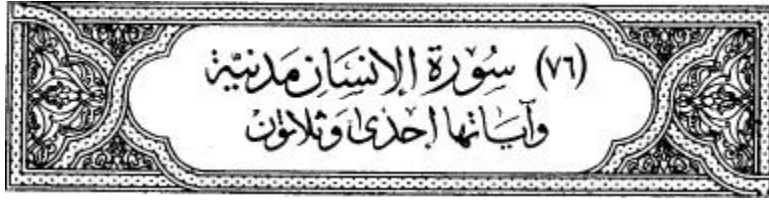 (٧٦) سُورَة الإنسَان مَدَنيّة
وَآيَاتها إحدى وَثلاثون